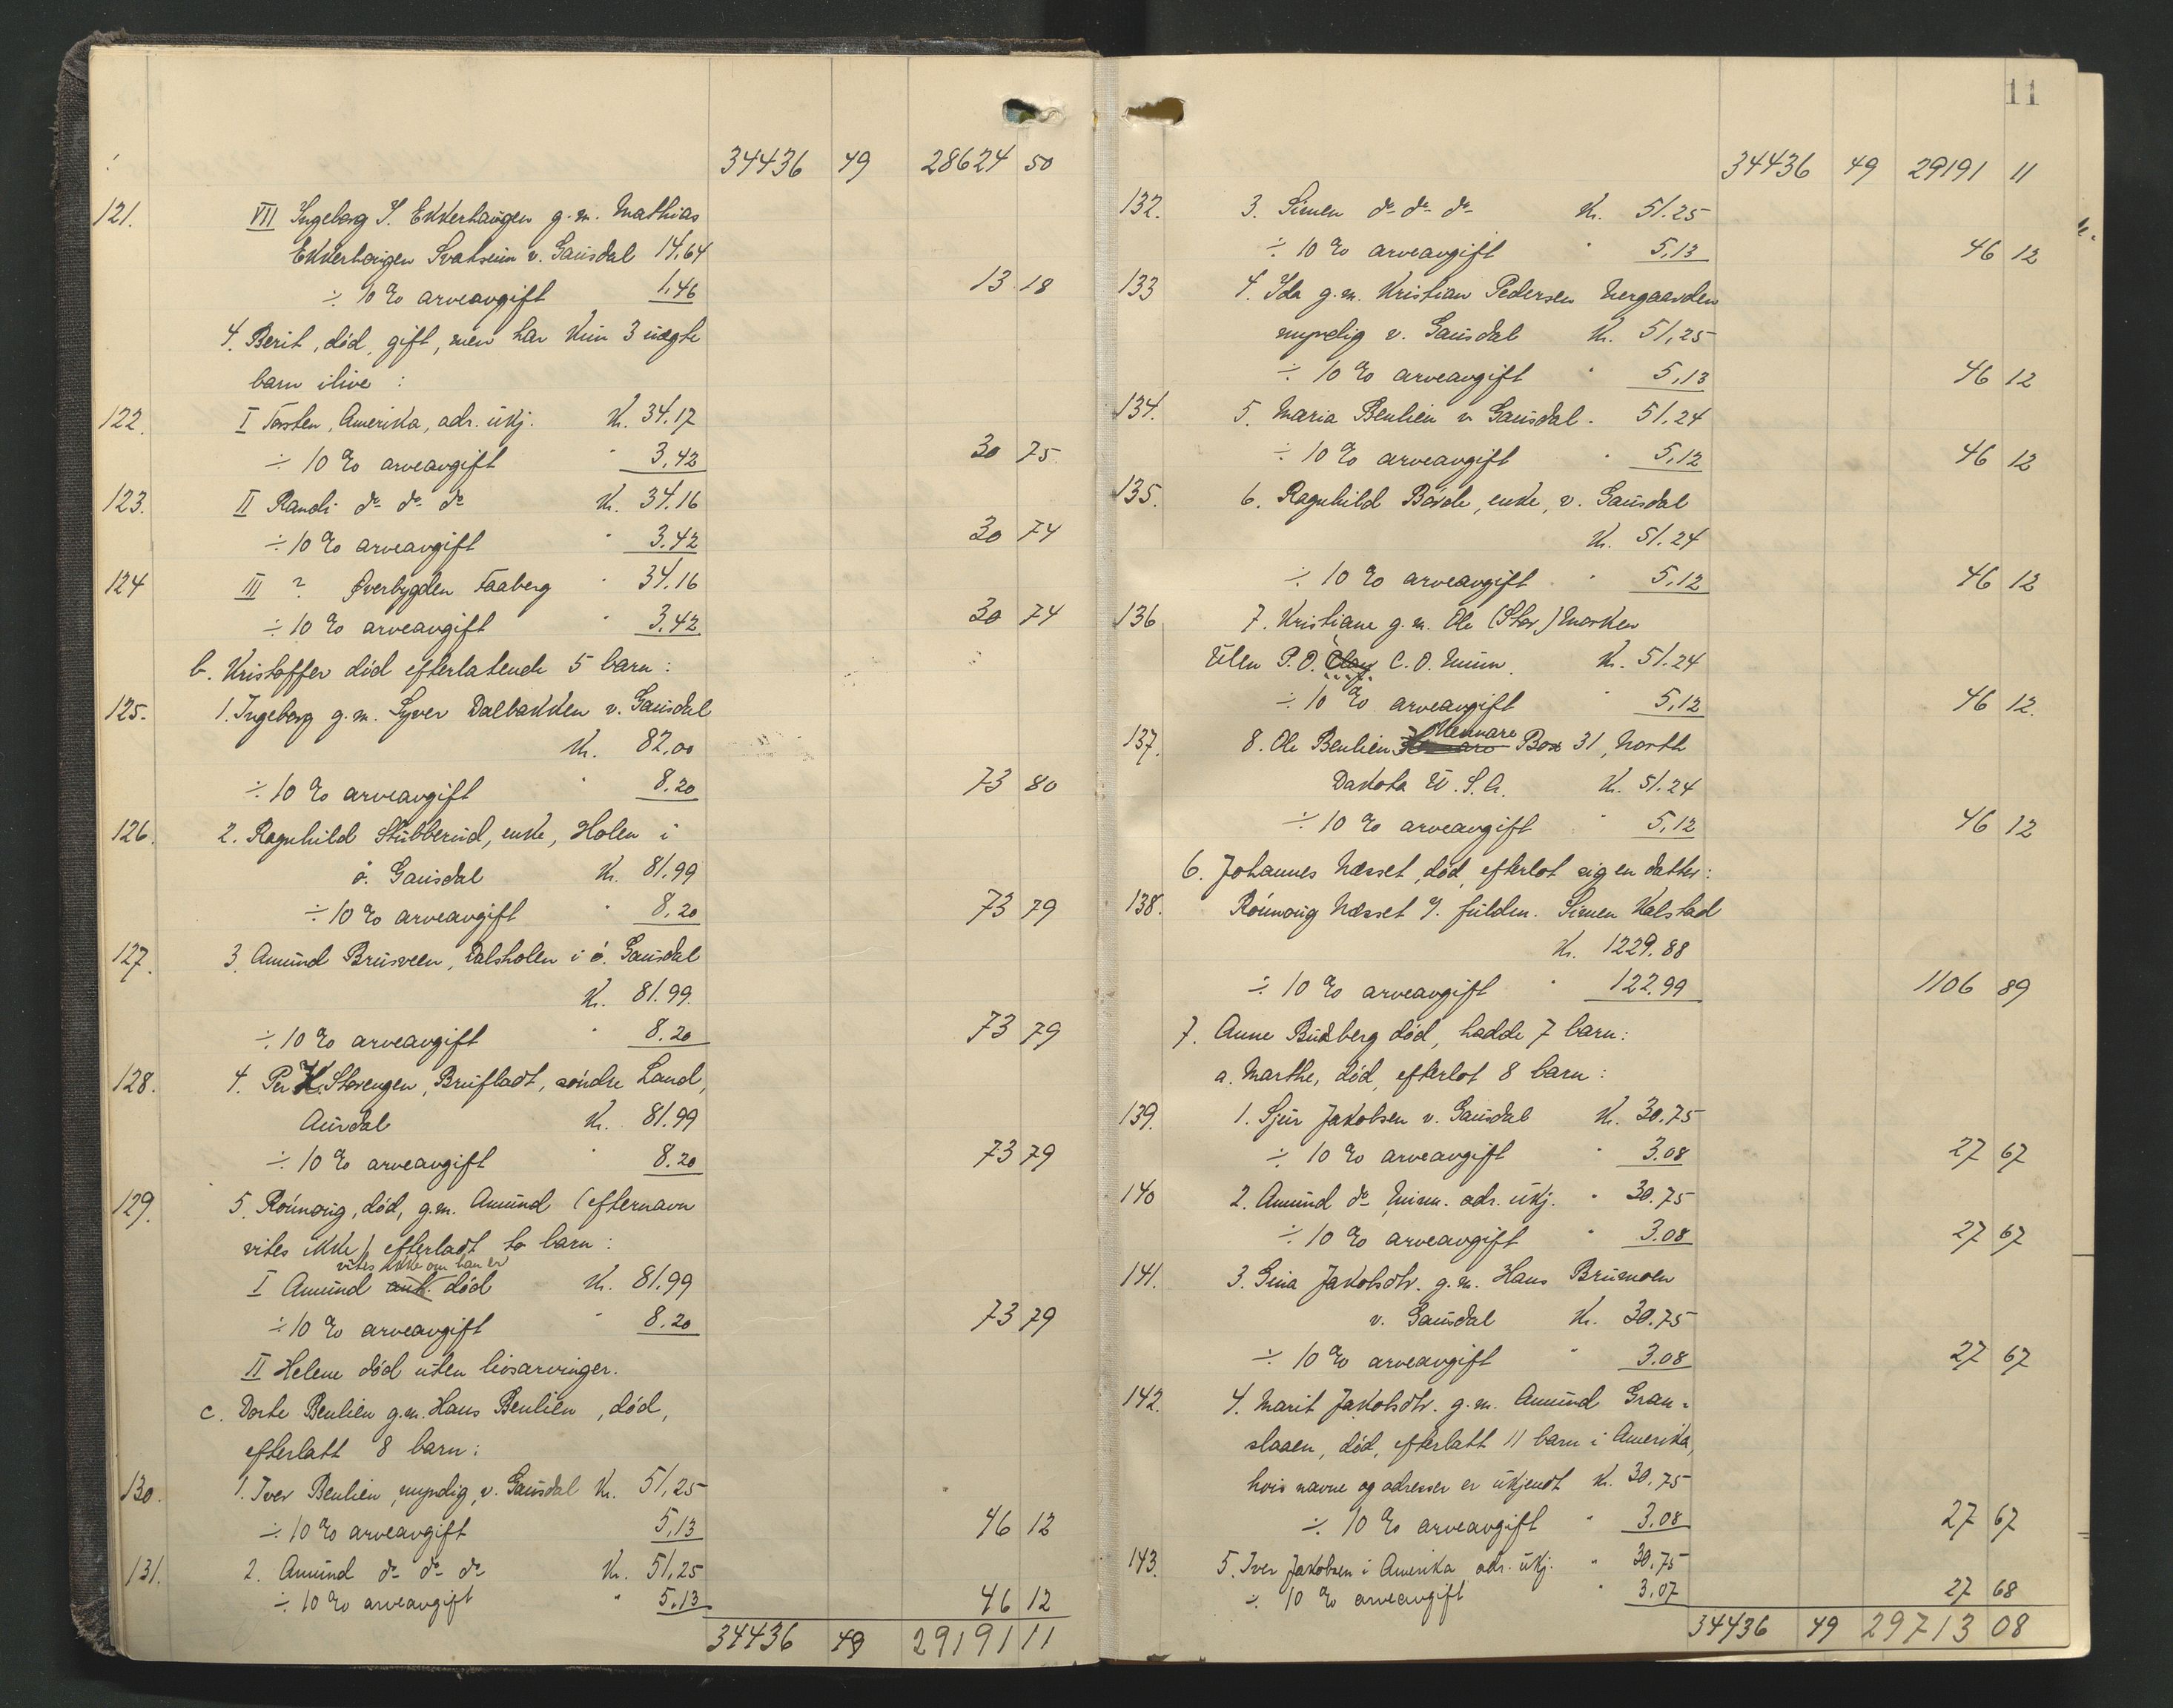 34436 49 28624 50
121. VII Ingeborg S. Ekkerhaugen g.m. Mathias
Ekkerhaugen Svatsum v. Gausdal 14,64
÷ 10 % arveavgift 1,46 13 18
4. Berit, død, gift, men har kun 3 uægte
barn ilive :
122. I Torsten, Amerika, adr. ukj. Kr. 34.17
÷ 10 % arveavgift " 3,42 30 75
123. II Randi do do do Kr. 34.16
÷ 10 % arveavgift " 3.42 30 74
124 III ? Øverbygden Faaberg " 34.16
÷ 10 % arveavgift " 3,42 30 74
b. Kristoffer død efterlatende 5 barn :
125. 1. Ingeborg g.m. Syver Dalbakken v. Gausdal
Kr. 82,00
÷ 10 % arveavgift " 8.20 73 80
126. 2. Ragnhild Stubberud, enke, Holen i
ø. Gausdal Kr. 81.99
÷ 10 % arveavgift " 8.20 73 79
127. 3. Amund Brusveen, Dalsholen i ø. Gausdal
Kr. 81.99
÷ 10 % arveavgift " 8.20 73 79
128. 4. Per K. Stavengen, Brufladt, søndre Land,
Aurdal Kr. 81.99
÷ 10 % arveavgift " 8.20 73 79
129. 5. Rønnaug, død, g.m. Amund (efternavn
vites ikke) efterladt to barn :
vites ikke om han er
I Amund ant. død Kr. 81.99
÷ 10 % arveavgift " 8.20 73 79
II Helene død uten livsarvinger.
c. Dorte Beulien g.m. Haus Beulien, død,
efterlatt 8 barn :
130. 1. Iver Beulien, myndig, v. Gausdal Kr. 51,25
÷ 10 % arveavgift 5,13 46 12
131. 2. Amund do do do Kr. 51,25
÷ 10 % arveavgift " 5.13 46 12
34436 49 29191 11
11
34436 49 29191 11
132. 3. Simen do do do Kr. 51.25
÷ 10 % arveavgift " 5,13 46 12
133 4. Ida g.m. Kristian Pedersen Nergaarden
myndig v. Gausdal Kr. 51,25
÷ 10 % arveavgift " 5,13 46 12
134. 5. Maria Beulien v. Gausdal " 51,24
÷ 10 % arveavgift " 5,12 46 12
135. 6. Ragnhild Bøvde, enke, v. Gausdal
Kr. 51.24
÷ 10 % arveavgift " 5,12 46 12
136 7. Kristiane g.m. Ole (Stor) Morken
Ulen P.O. Clay C.O. Minn. Kr. 51.24
÷ 10 % arveavgift " 5,12 46 12
137. 8. Ole Beulien Box 31, North
Dakota U.S.A. Kr. 51.24
÷ 10 % arveavgift " 5,12 46 12
6. Johannes Næsset, død, efterlot sig en datter :
138. Rønnaug Næsset v. fuldm. Simen Kalstad
Kr. 1229.88
÷ 10 % arveavgift " 122.99 1106 89
7. Anne Budberg død, hadde 7 barn :
a. Marthe, død, efterlot 8 barn :
139. 1. Sjur Jakobsen v. Gausdal Kr. 30.75
÷ 10 % arveavgift " 3.08 27 67
140 2. Amund do Minn. adr. ukj. " 30.75
÷ 10 % arveavgift " 3.08 27 67
141. 3. Gina Jakobsdtr. g.m. Hans Brumoen
v. Gausdal Kr. 30.75
÷ 10 % arveavgift " 3.08 27 67
142. 4. Marit Jakobsdtr. g.m. Amund Gran-
slaaen, død, efterlatt 11 barn i Amerika,
hvis navne og adresser er ukjendt Kr. 30.75
÷ 10 % arveavgift " 3.08 27 67
143. 5. Iver Jakobsen i Amerika, adr. ukj. " 30.75
÷ 10 % arveavgift " 3,07 27 68
34436 49 29713 08